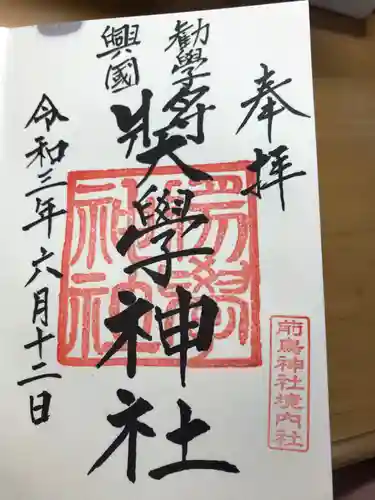 奉拝
勸學
興國
奨學神社
令和三年六月十二日
前鳥神社境内社